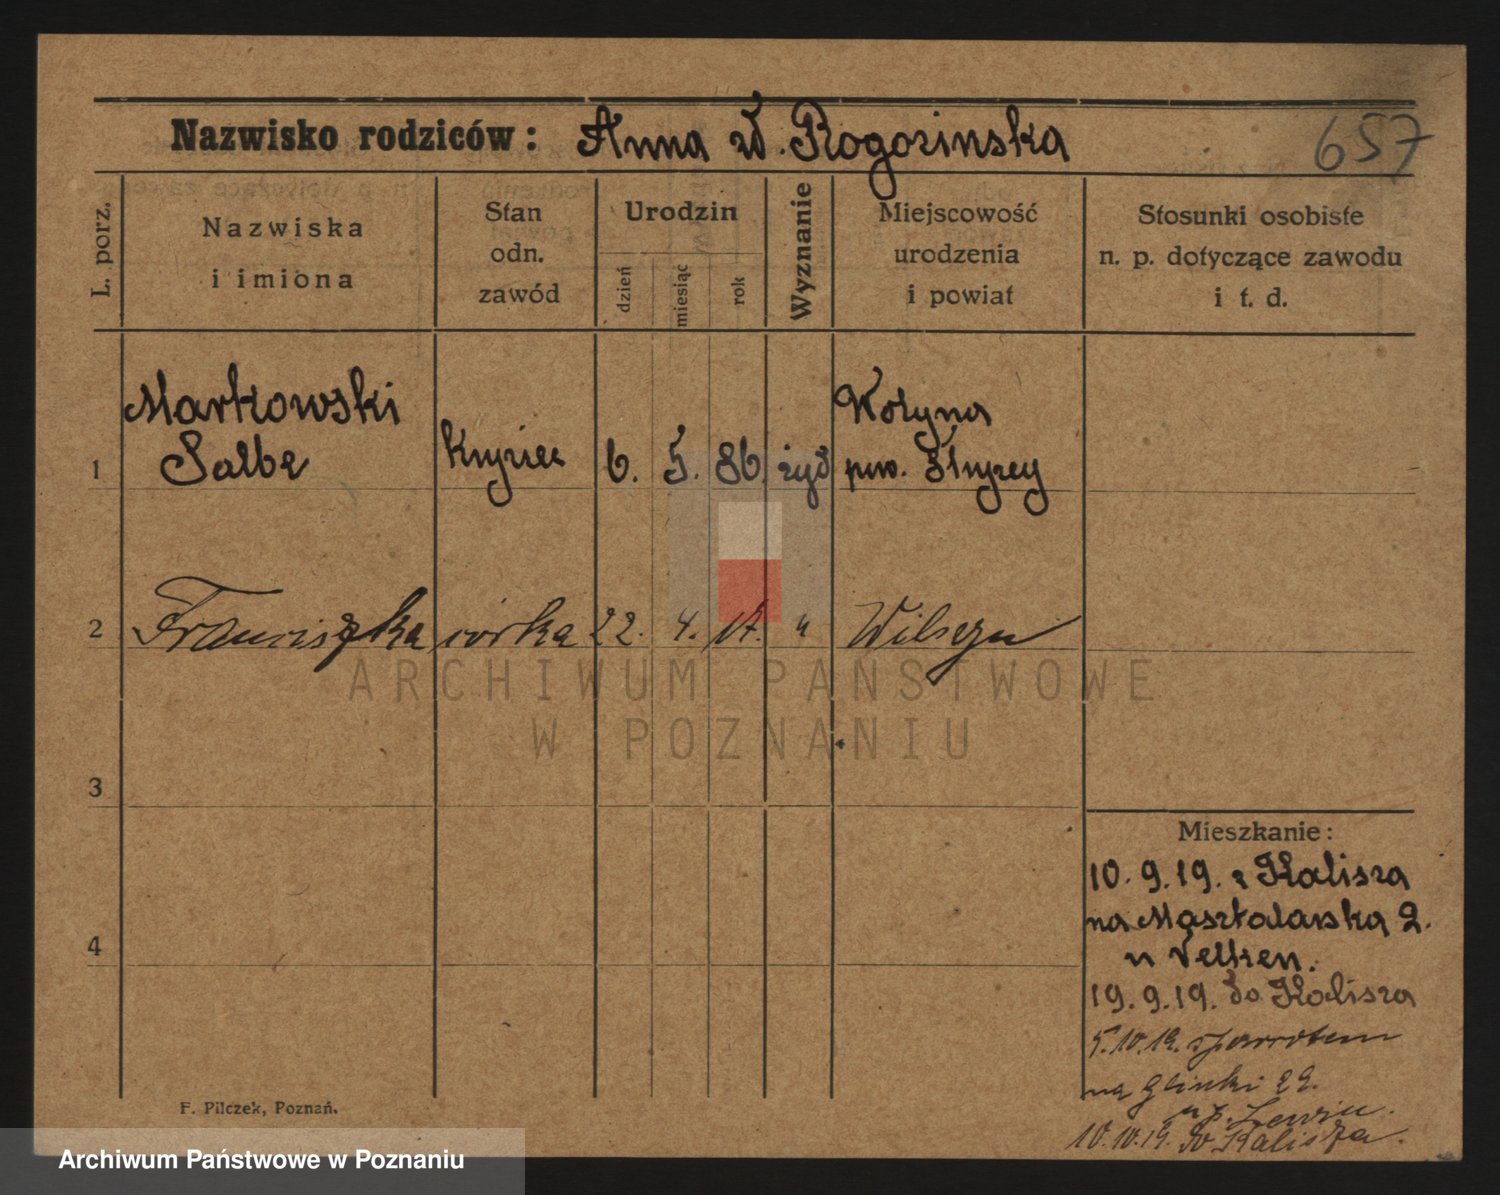 Nazwisko rodziców: Anna zd. Rogozinska
657
L. porz.
Nazwiska
i imiona
Stan
odn.
zawód
Urodzin
dzień
miesiąc
rok
Wyznanie
Miejscowość
urodzenia
i powiat
Stosunki osobiste
n. p. dotyczące zawodu
i t. d.
Markowski
1 Salbe kupiec 6. 5. 86. żyd
pow.
2 Franciszka córka 22. 4. 17. "
3
4
Mieszkanie:
10. 9. 19. z Kalisza
na Masztalarska 2.
u Velken.
19. 9. 19. do Kalisza
5.10.19. spowrotem
na Glinki 22.
u p. Lewin.
10.10.19. do Kalisza.
F. Pilczek, Poznań.
ARCHIWUM PAŃSTWOWE
W POZNANIU
Archiwum Państwowe w Poznaniu